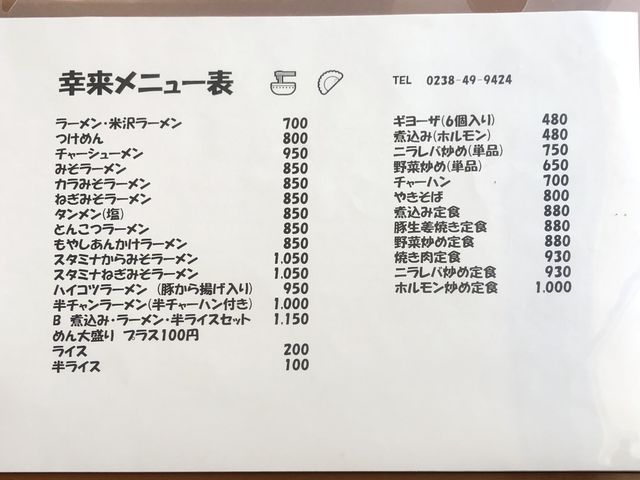 幸来メニュー表
TEL 0238-49-9424
ラーメン・米沢ラーメン 700
つけめん 800
チャーシューメン 950
みそラーメン 850
カラみそラーメン 850
ねぎみそラーメン 850
タンメン(塩) 850
とんこつラーメン 850
もやしあんかけラーメン 850
スタミナからみそラーメン 1.050
スタミナねぎみそラーメン 1.050
ハイコツラーメン (豚から揚げ入り) 950
半チャンラーメン(半チャーハン付き) 1.000
B 煮込み・ラーメン・半ライスセット 1.150
めん大盛り プラス100円
ライス 200
半ライス 100
ギヨーザ(6個入り) 480
煮込み(ホルモン) 480
ニラレバ炒め(単品) 750
野菜炒め(単品) 650
チャーハン 700
やきそば 800
煮込み定食 880
豚生姜焼き定食 880
野菜炒め定食 880
焼き肉定食 930
ニラレバ炒め定食 930
ホルモン炒め定食 1.000